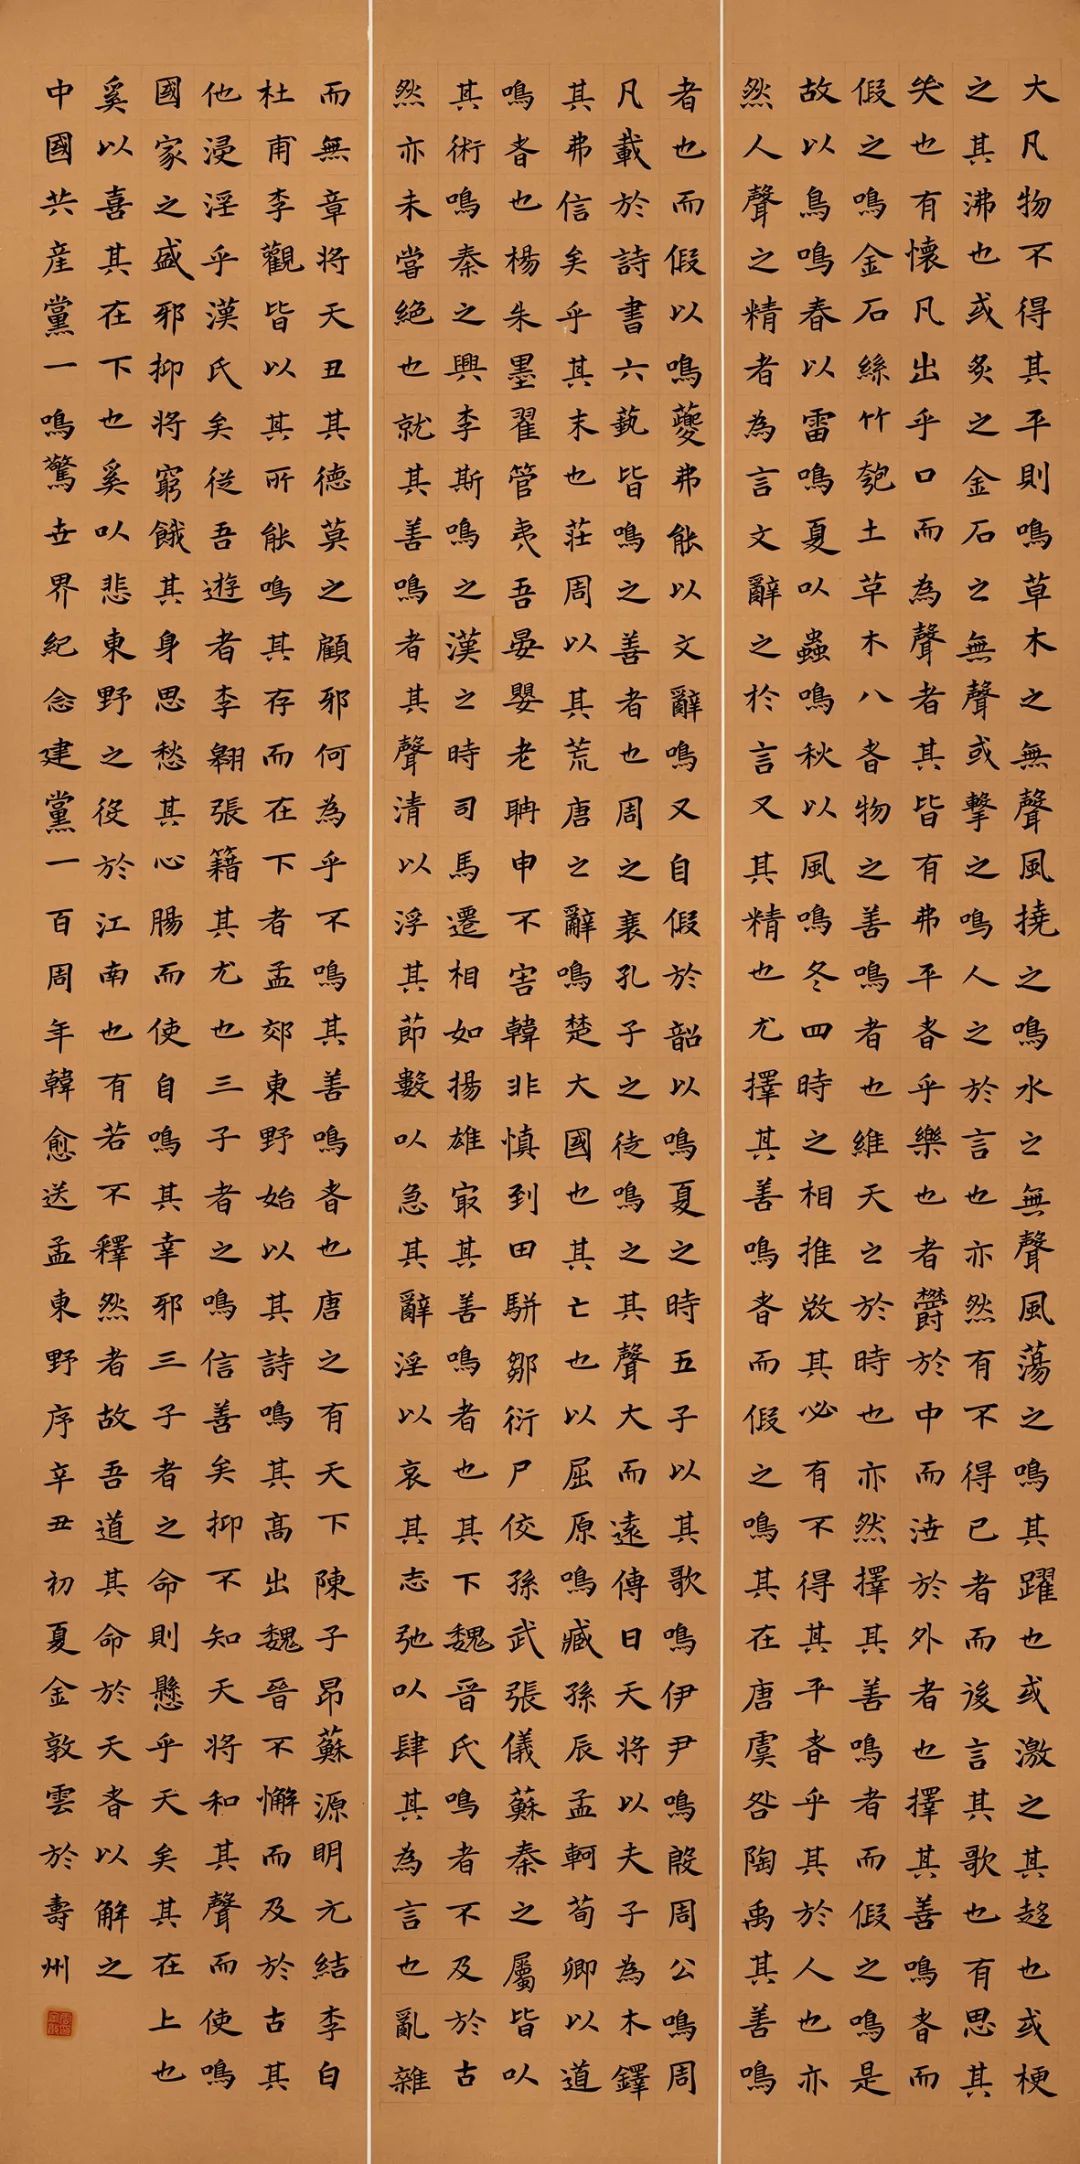 大凡物不得其平則鳴草木之無聲風撓之鳴水之無聲風蕩之鳴其躍也或激之其趍也或梗
之其沸也或炙之金石之無聲或擊之鳴人之於言也亦然有不得已者而後言其歌也有思其
哭也有懷凡出乎口而為聲者其皆有弗平者乎樂也者鬱於中而泄於外者也擇其善鳴者而
假之鳴金石絲竹匏土草木八者物之善鳴者也維天之於時也亦然擇其善鳴者而假之鳴是
故以鳥鳴春以雷鳴夏以蟲鳴秋以風鳴冬四時之相推敚其必有不得其平者乎其於人也亦
然人聲之精者為言文辭之於言又其精也尤擇其善鳴者而假之鳴其在唐虞咎陶禹其善鳴
者也而假以鳴夔弗能以文辭鳴又自假於韶以鳴夏之時五子以其歌鳴伊尹鳴殷周公鳴周
凡載於詩書六藝皆鳴之善者也周之衰孔子之徒鳴之其聲大而遠傳曰天將以夫子為木鐸
其弗信矣乎其末也莊周以其荒唐之辭鳴楚大國也其亡也以屈原鳴臧孫辰孟軻荀卿以道
鳴者也楊朱墨翟管夷吾晏嬰老聃申不害韓非慎到田駢鄒衍尸佼孫武張儀蘇秦之屬皆以
其術鳴秦之興李斯鳴之漢之時司馬遷相如揚雄最其善鳴者也其下魏晉氏鳴者不及於古
然亦未嘗絕也就其善鳴者其聲清以浮其節數以急其辭淫以哀其志弛以肆其為言也亂雜
而無章將天丑其德莫之顧邪何為乎不鳴其善鳴者也唐之有天下陳子昂蘇源明元結李白
杜甫李觀皆以其所能鳴其存而在下者孟郊東野始以其詩鳴其高出魏晉不懈而及於古其
他浸淫乎漢氏矣從吾遊者李翱張籍其尤也三子者之鳴信善矣抑不知天將和其聲而使鳴
國家之盛邪抑將窮餓其身思愁其心腸而使自鳴其幸邪三子者之命則懸乎天矣其在上也
奚以喜其在下也奚以悲東野之役於江南也有若不釋然者故吾道其命於天者以解之
中國共産黨一鳴驚世界紀念建黨一百周年韓愈送孟東野序辛丑初夏金敦雲於壽州